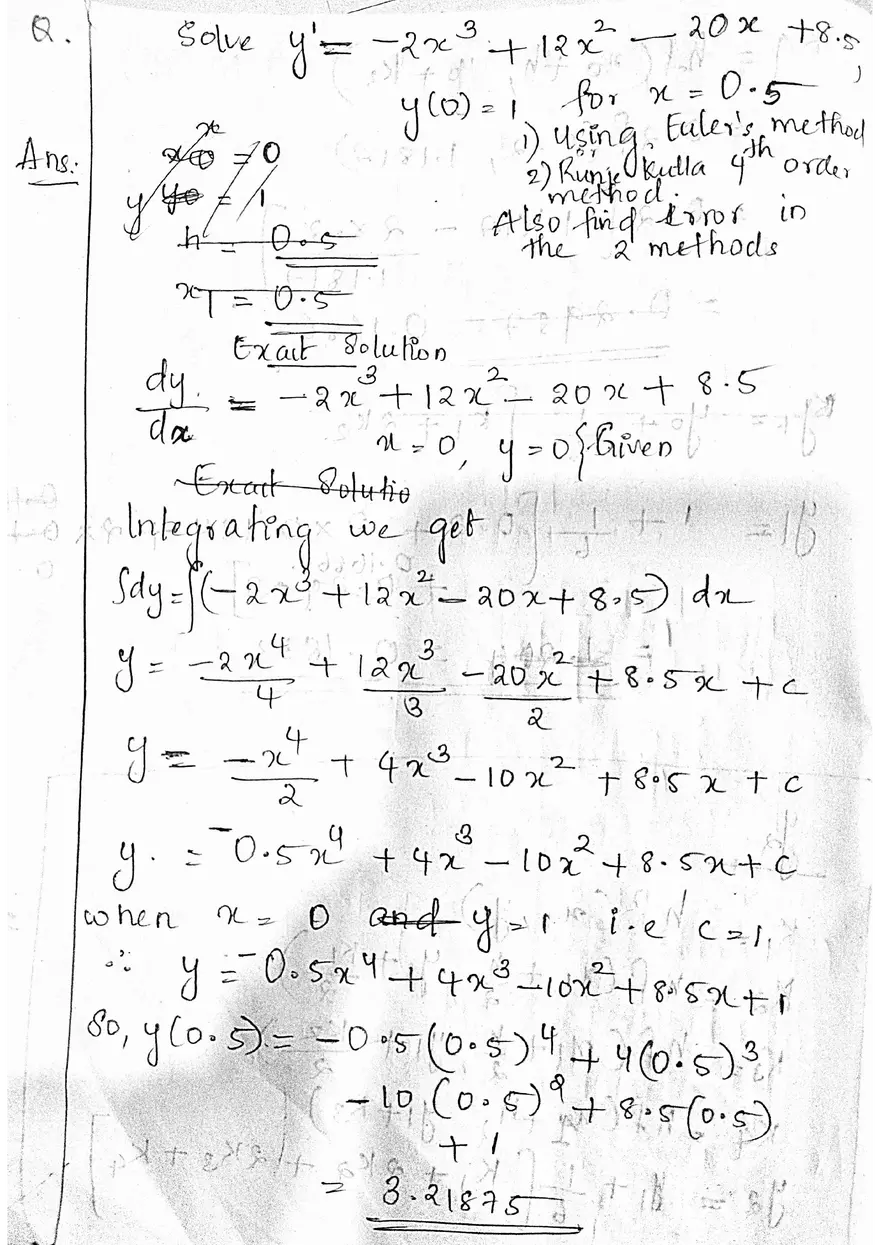 Q. Solve y' = -2x³ + 12x² - 20x + 8.5,
y(0) = 1 for x = 0.5
1) Using Euler's method
2) Runje Kutla 4th order
method.
Also find Error in
the 2 methods
Ans:
x0 = 0
y0 = 1
h = 0.5
x1 = 0.5
Exact Solution
dy/dx = -2x³ + 12x² - 20x + 8.5
x = 0, y = 0 } Given
Exact Solutio
Integrating we get
∫dy = ∫(-2x³ + 12x² - 20x + 8.5) dx
y = -2x⁴/4 + 12x³/3 - 20x²/2 + 8.5x + c
y = -x⁴/2 + 4x³ - 10x² + 8.5x + c
y. = -0.5x⁴ + 4x³ - 10x² + 8.5x + c
when x = 0 and y = 1 i.e c = 1,
∴ y = -0.5x⁴ + 4x³ - 10x² + 8.5x + 1
So, y(0.5) = -0.5(0.5)⁴ + 4(0.5)³
-10(0.5)² + 8.5(0.5)
+ 1
= 3.21875